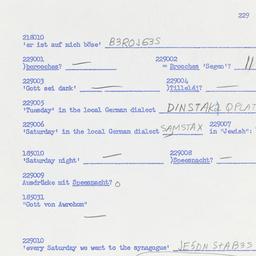 229
218010
'er ist auf mich böse' B3ROJ63S
229001 229002
)borooches? — = Broochen 'Segen'? 11
229003 229004
'Gott sei dank' —
229005
'Tuesday' in the local German dialect DINSTAK
229006 229007
'Saturday' in the local German dialect SAMSTAX in "Jewish":
185010 229008
'Saturday night' — )Speesnacht? —
229009
Ausdrücke mit Speesnacht? 0
185031
"Gott von Awrohom"
—
229010
'every Saturday we went to the synagogue'